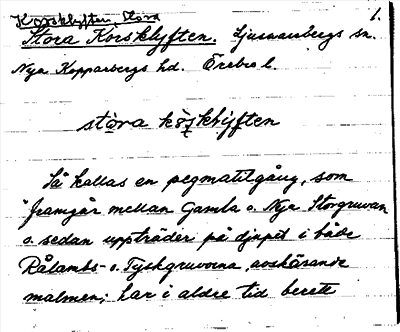 Korsklyften, Stora
1.
Stora Korsklyften. Ljusnarsbergs sn.
Nya Kopparbergs hd. Örebro l.
stòra kòşklyften
Så kallas en pegmatitgång, som
framgår mellan Gamla o. Nya Storgruvan
o. sedan uppträder på djupet i både
Rålambs- o. Tyskgruvorna, avskärande
malmen; har i äldre tid berett